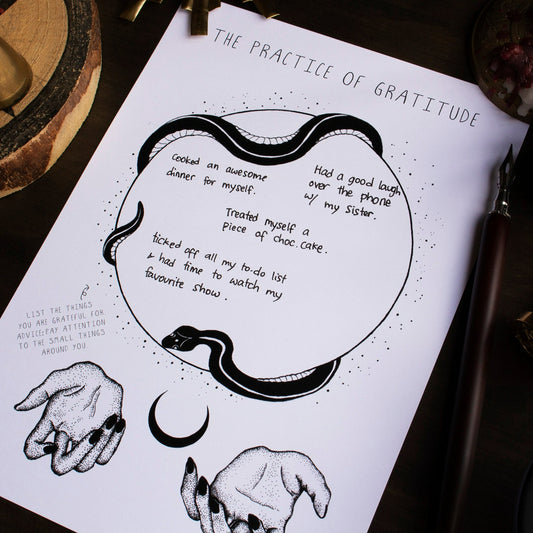 THE PRACTICE OF GRATITUDE
Cooked an awesome
dinner for myself.
Had a good laugh
over the phone
w/ my sister.
Treated myself a
piece of choc. cake.
ticked off all my to-do list
+ had time to watch my
favourite show.
LIST THE THINGS
YOU ARE GRATEFUL FOR.
ADVICE: PAY ATTENTION
TO THE SMALL THINGS
AROUND YOU.